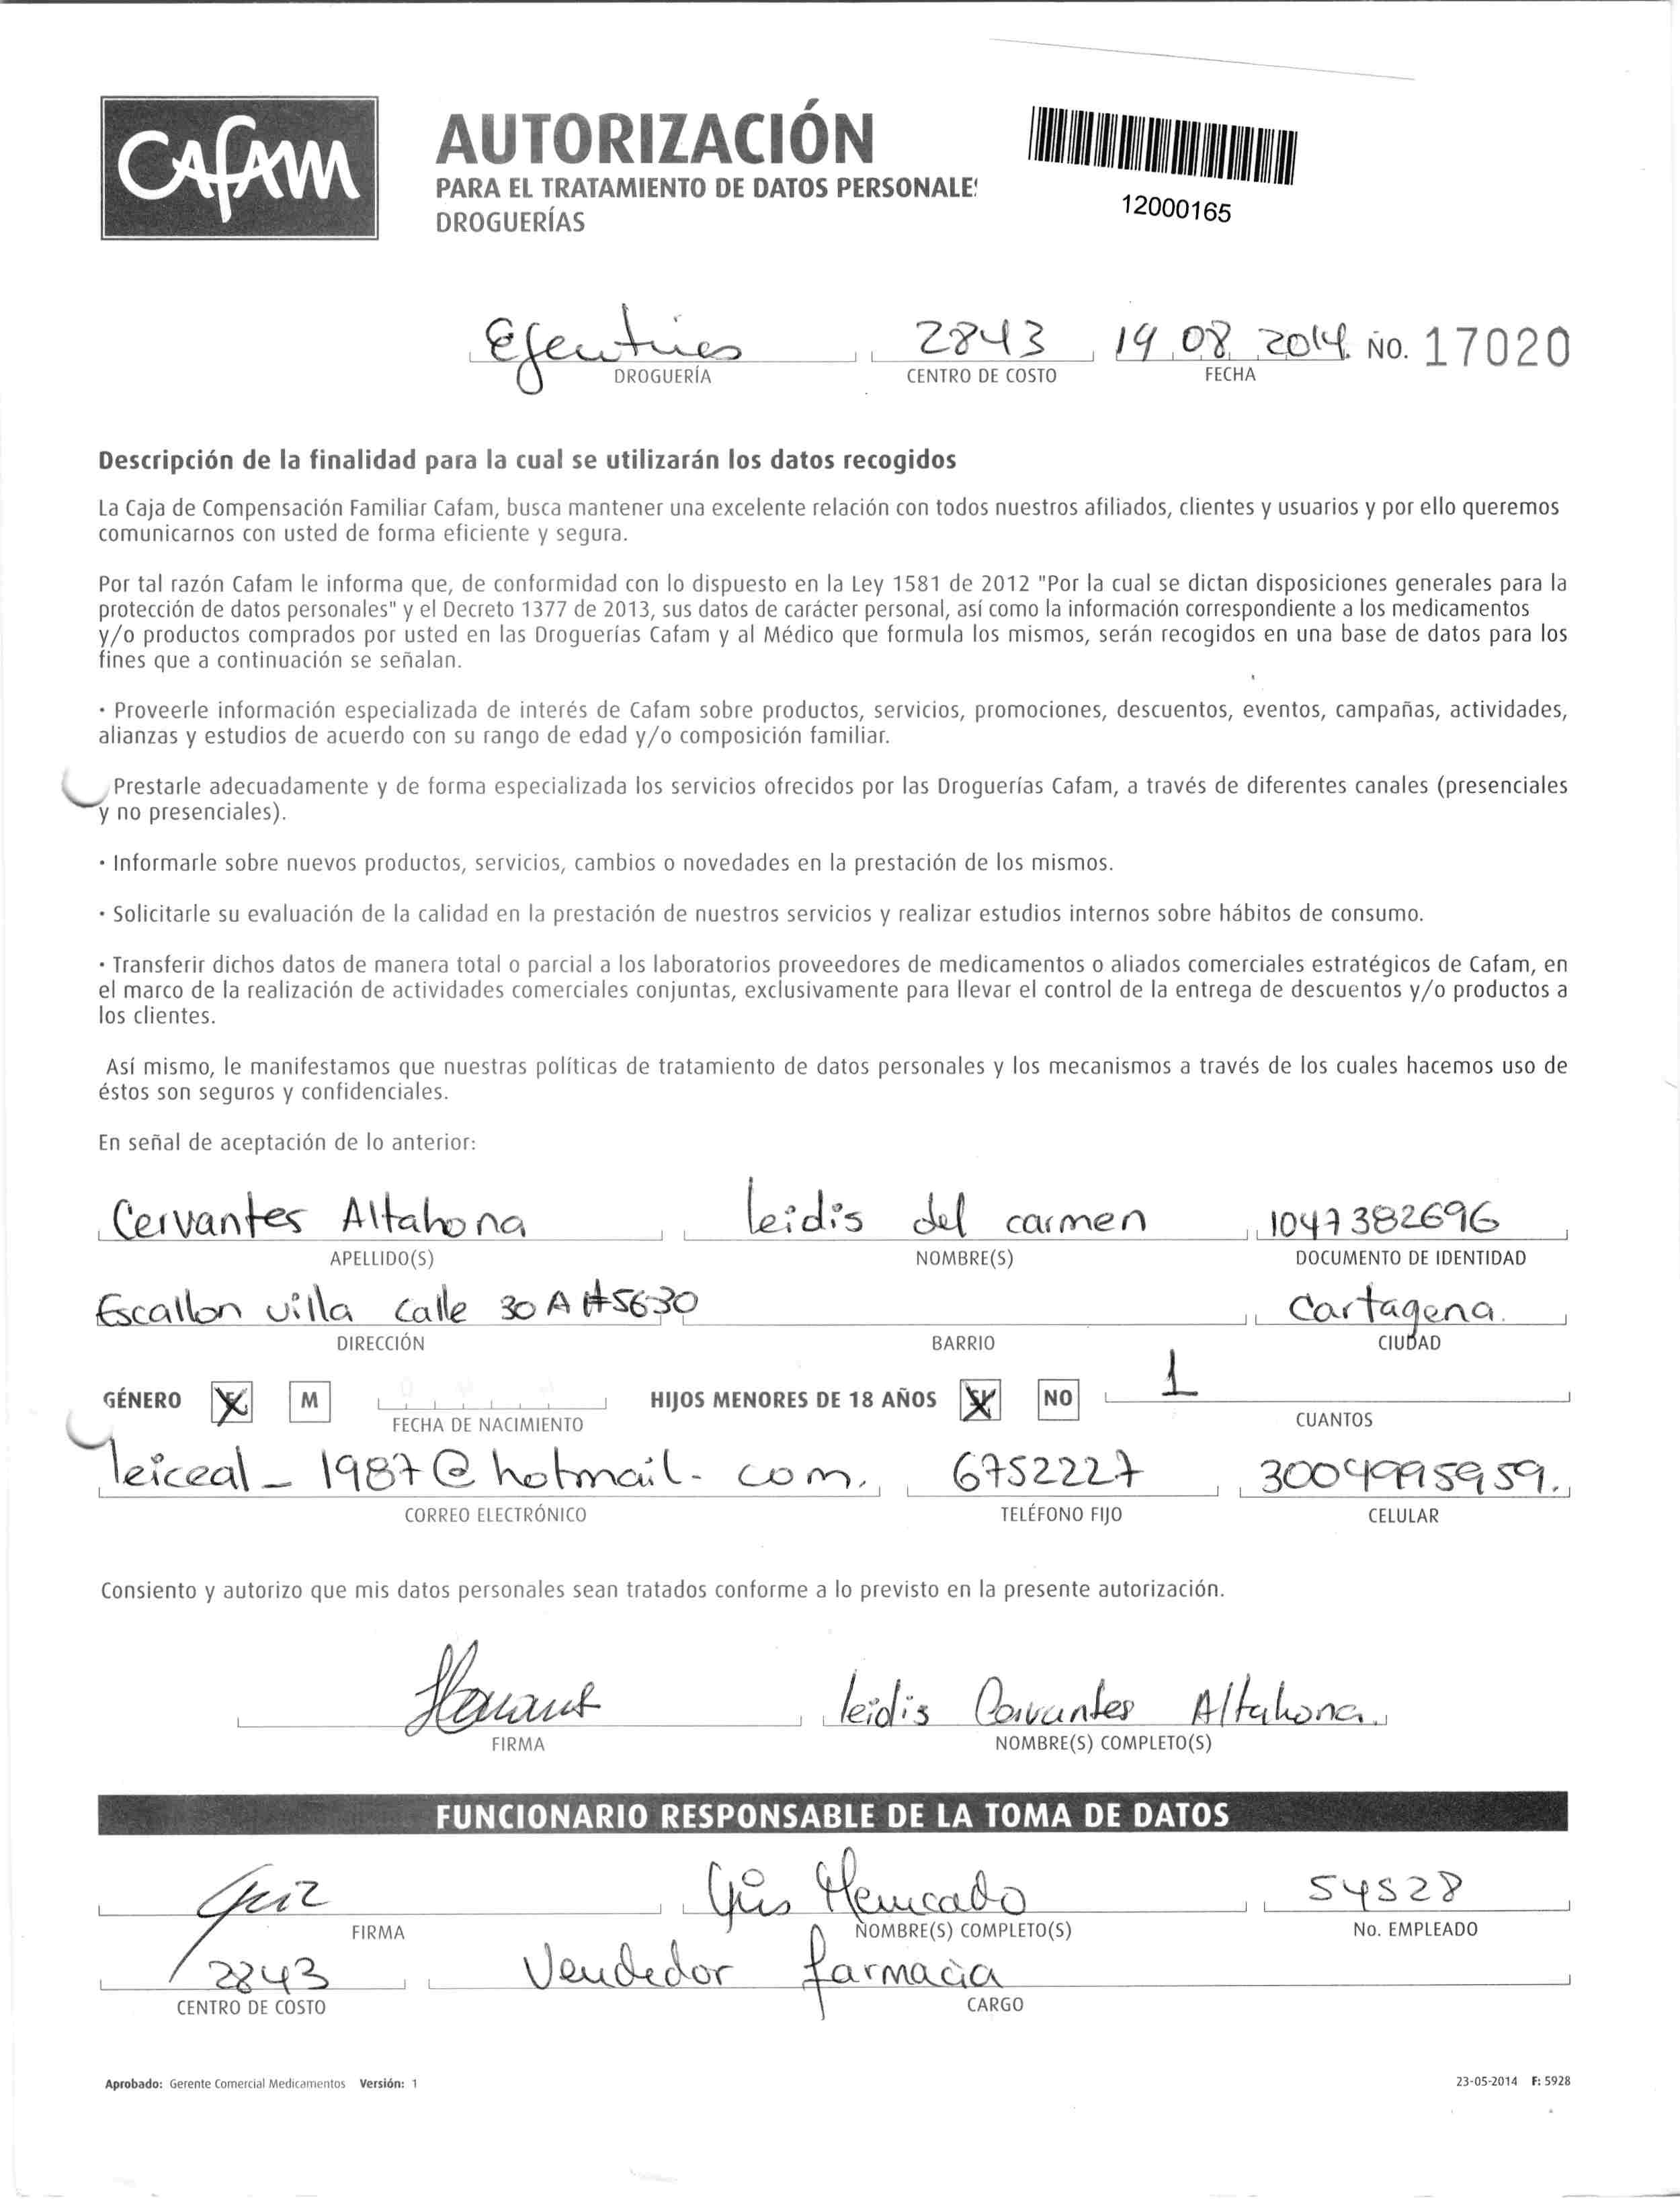 Cafam
AUTORIZACIÓN
PARA EL TRATAMIENTO DE DATOS PERSONALE
DROGUERÍAS
12000165
2843 19 08 2014. No. 17020
DROGUERÍA CENTRO DE COSTO FECHA
Descripción de la finalidad para la cual se utilizarán los datos recogidos
La Caja de Compensación Familiar Cafam, busca mantener una excelente relación con todos nuestros afiliados, clientes y usuarios y por ello queremos
comunicarnos con usted de forma eficiente y segura.
Por tal razón Cafam le informa que, de conformidad con lo dispuesto en la Ley 1581 de 2012 "Por la cual se dictan disposiciones generales para la
protección de datos personales" y el Decreto 1377 de 2013, sus datos de carácter personal, así como la información correspondiente a los medicamentos
y/o productos comprados por usted en las Droguerías Cafam y al Médico que formula los mismos, serán recogidos en una base de datos para los
fines que a continuación se señalan.
· Proveerle información especializada de interés de Cafam sobre productos, servicios, promociones, descuentos, eventos, campañas, actividades,
alianzas y estudios de acuerdo con su rango de edad y/o composición familiar.
Prestarle adecuadamente y de forma especializada los servicios ofrecidos por las Droguerías Cafam, a través de diferentes canales (presenciales
y no presenciales).
· Informarle sobre nuevos productos, servicios, cambios o novedades en la prestación de los mismos.
· Solicitarle su evaluación de la calidad en la prestación de nuestros servicios y realizar estudios internos sobre hábitos de consumo.
· Transferir dichos datos de manera total o parcial a los laboratorios proveedores de medicamentos o aliados comerciales estratégicos de Cafam, en
el marco de la realización de actividades comerciales conjuntas, exclusivamente para llevar el control de la entrega de descuentos y/o productos a
los clientes.
Así mismo, le manifestamos que nuestras políticas de tratamiento de datos personales y los mecanismos a través de los cuales hacemos uso de
éstos son seguros y confidenciales.
En señal de aceptación de lo anterior:
Cervantes Altahona leidis del carmen 1047382696
APELLIDO(S) NOMBRE(S) DOCUMENTO DE IDENTIDAD
Escallon villa calle 30 A #5630 Cartagena.
DIRECCIÓN BARRIO CIUDAD
GÉNERO M HIJOS MENORES DE 18 AÑOS SI NO 1
FECHA DE NACIMIENTO CUANTOS
leiceal_1987@hotmail.com. 6752227 3004995959.
CORREO ELECTRÓNICO TELÉFONO FIJO CELULAR
Consiento y autorizo que mis datos personales sean tratados conforme a lo previsto en la presente autorización.
leidis Cervantes Altahona.
FIRMA NOMBRE(S) COMPLETO(S)
FUNCIONARIO RESPONSABLE DE LA TOMA DE DATOS
Mercado 54528
FIRMA NOMBRE(S) COMPLETO(S) No. EMPLEADO
2843 Vendedor farmacia
CENTRO DE COSTO CARGO
Aprobado: Gerente Comercial Medicamentos Versión: 1 23-05-2014 F: 5928